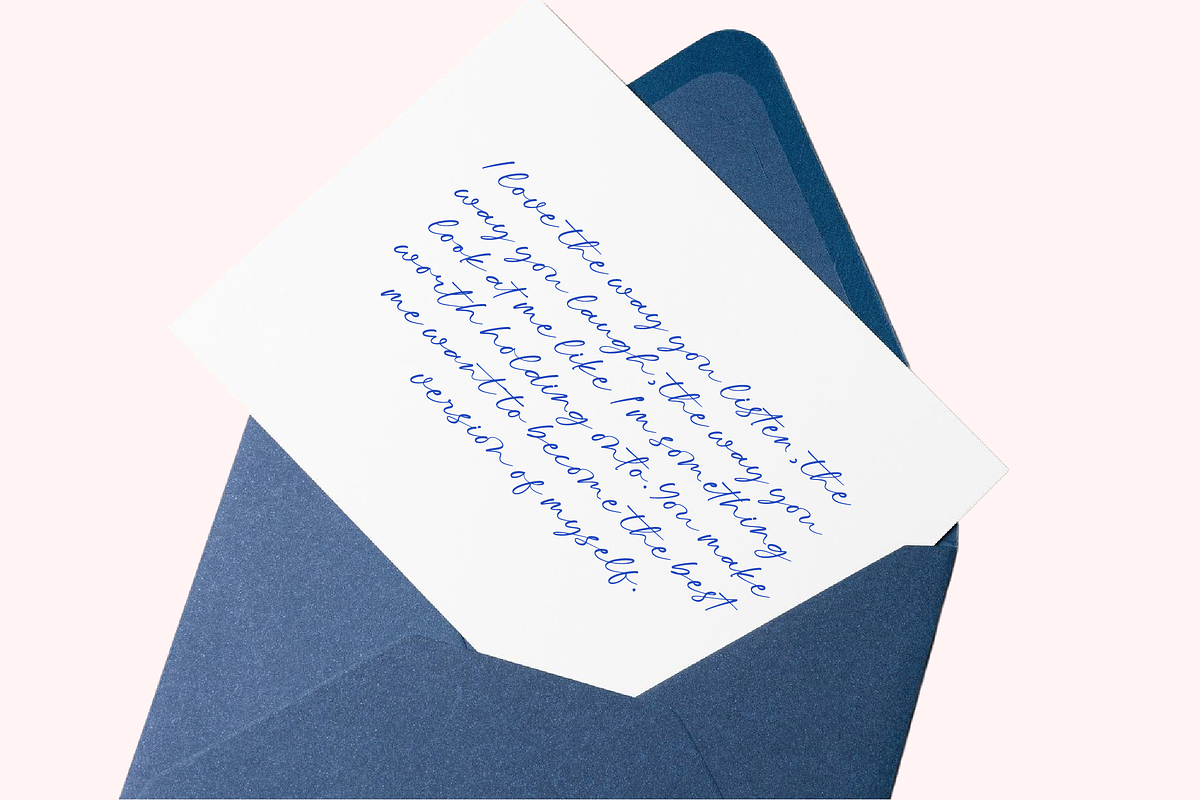 I love the way you listen, the
way you laugh, the way you
look at me like I'm something
worth holding onto. You make
me want to become the best
version of myself.